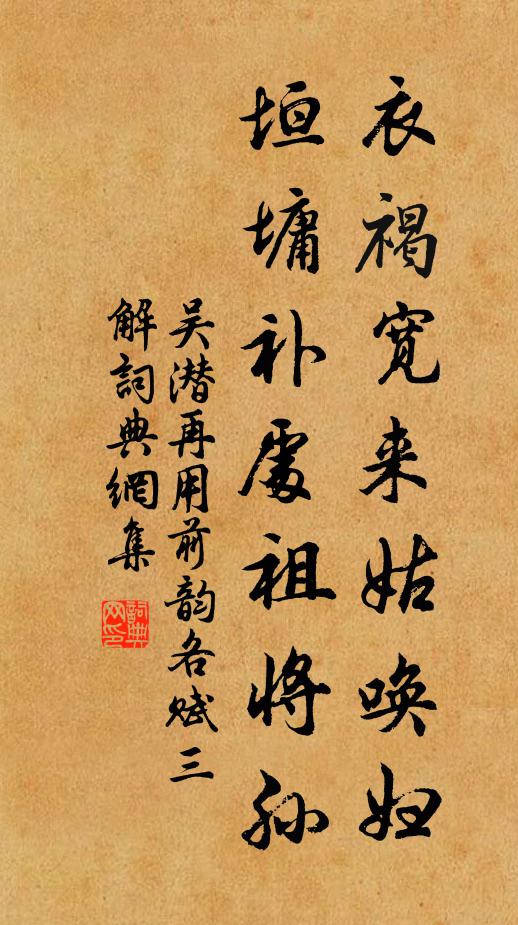 衣褐宽来姑唤妇
垣墉补处祖将孙
吴潜再用前韵各赋三
解詞典網集
詞典网印